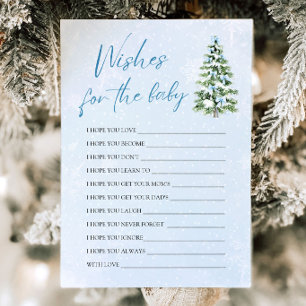 Wishes
for the baby
I HOPE YOU LOVE
I HOPE YOU BECOME
I HOPE YOU DON'T
I HOPE YOU LEARN TO
I HOPE YOU GET YOUR MOM'S
I HOPE YOU GET YOUR DAD'S
I HOPE YOU LAUGH
I HOPE YOU NEVER FORGET
I HOPE YOU IGNORE
I HOPE YOU ALWAYS
WITH LOVE